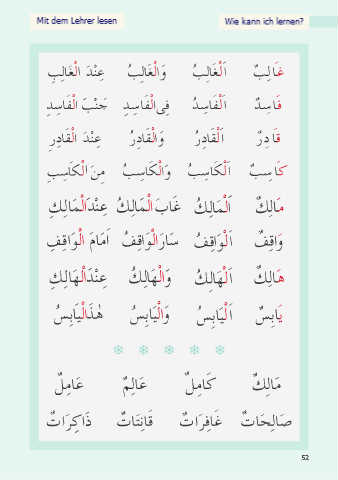 Mit dem Lehrer lesen
Wie kann ich lernen?
غَالِبٌ اَلْغَالِبُ وَالْغَالِبُ عِنْدَ الْغَالِبِ
فَاسِدٌ اَلْفَاسِدُ فِى الْفَاسِدِ جَنْبَ الْفَاسِدِ
قَادِرٌ اَلْقَادِرُ وَالْقَادِرُ عِنْدَ الْقَادِرِ
كَاسِبٌ اَلْكَاسِبُ وَالْكَاسِبُ مِنَ الْكَاسِبِ
مَالِكٌ اَلْمَالِكُ غَابَ الْمَالِكُ عِنْدَ الْمَالِكِ
وَاقِفٌ اَلْوَاقِفُ سَارَ الْوَاقِفُ اَمَامَ الْوَاقِفِ
هَالِكٌ اَلْهَالِكُ وَالْهَالِكُ عِنْدَ الْهَالِكِ
يَابِسٌ اَلْيَابِسُ وَالْيَابِسُ هٰذَا الْيَابِسُ
مَالِكٌ كَامِلٌ عَالِمٌ عَامِلٌ
صَالِحَاتٌ غَافِرَاتٌ قَانِتَاتٌ ذَاكِرَاتٌ
52